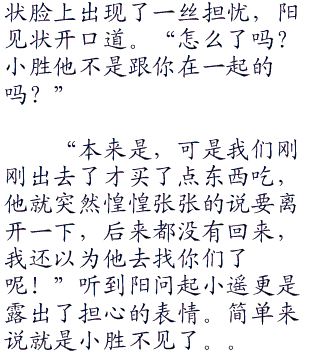 状脸上出现了一丝担忧，阳
见状开口道。“怎么了吗？
小胜他不是跟你在一起的
吗？”
“本来是，可是我们刚
刚出去了才买了点东西吃，
他就突然惶惶张张的说要离
开一下，后来都没有回来，
我还以为他去找你们了
呢！”听到阳问起小遥更是
露出了担心的表情。简单来
说就是小胜不见了。。